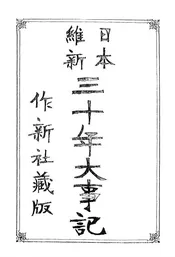 日本
維新
三十年大事記
作新社藏版